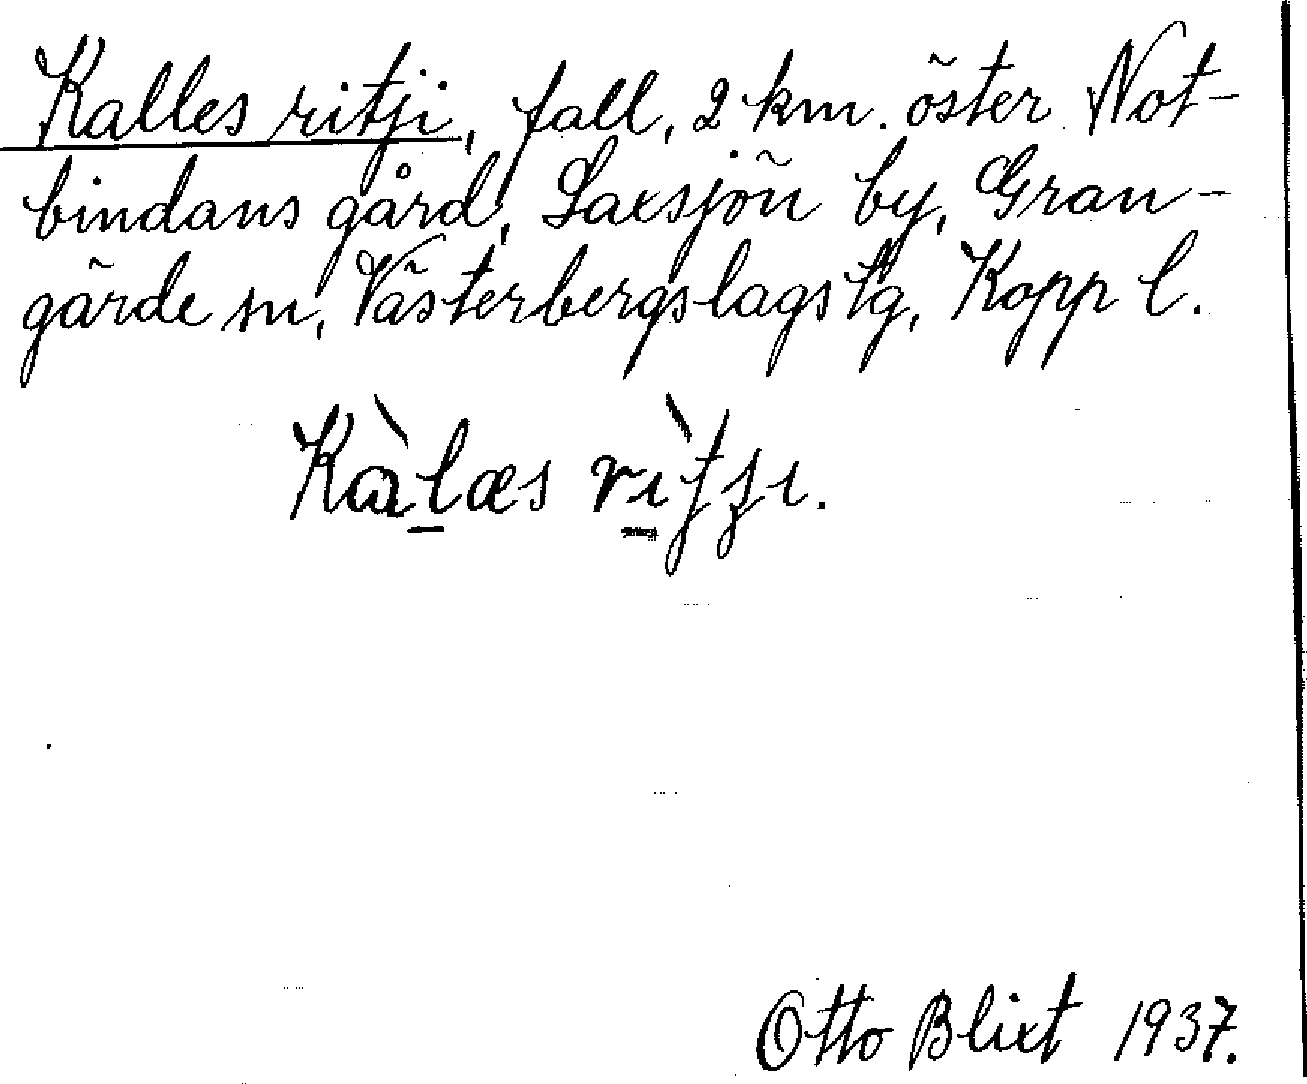 Kalles ritji, fall, 2 km. öster Not-
bindans gård, Saxsjön by, Gran-
gärde sn, Västerbergslags tg, Kopp l.
Kàlæs rìtȷı.
Otto Blixt 1937.